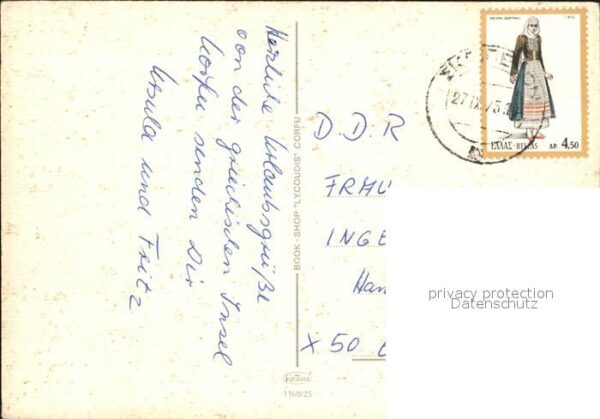 Herzliche Urlaubsgrüße
von der griechischen Insel
Korfu senden Dir
Ursula und Fritz
BOOK - SHOP "LYCOUDIS" CORFU
1168/25
D.D.R
INGE
Han
X 50
27 IX 73
1972
ΕΛΛΑΣ-HELLAS ΔΡ. 4,50
privacy protection
Datenschutz